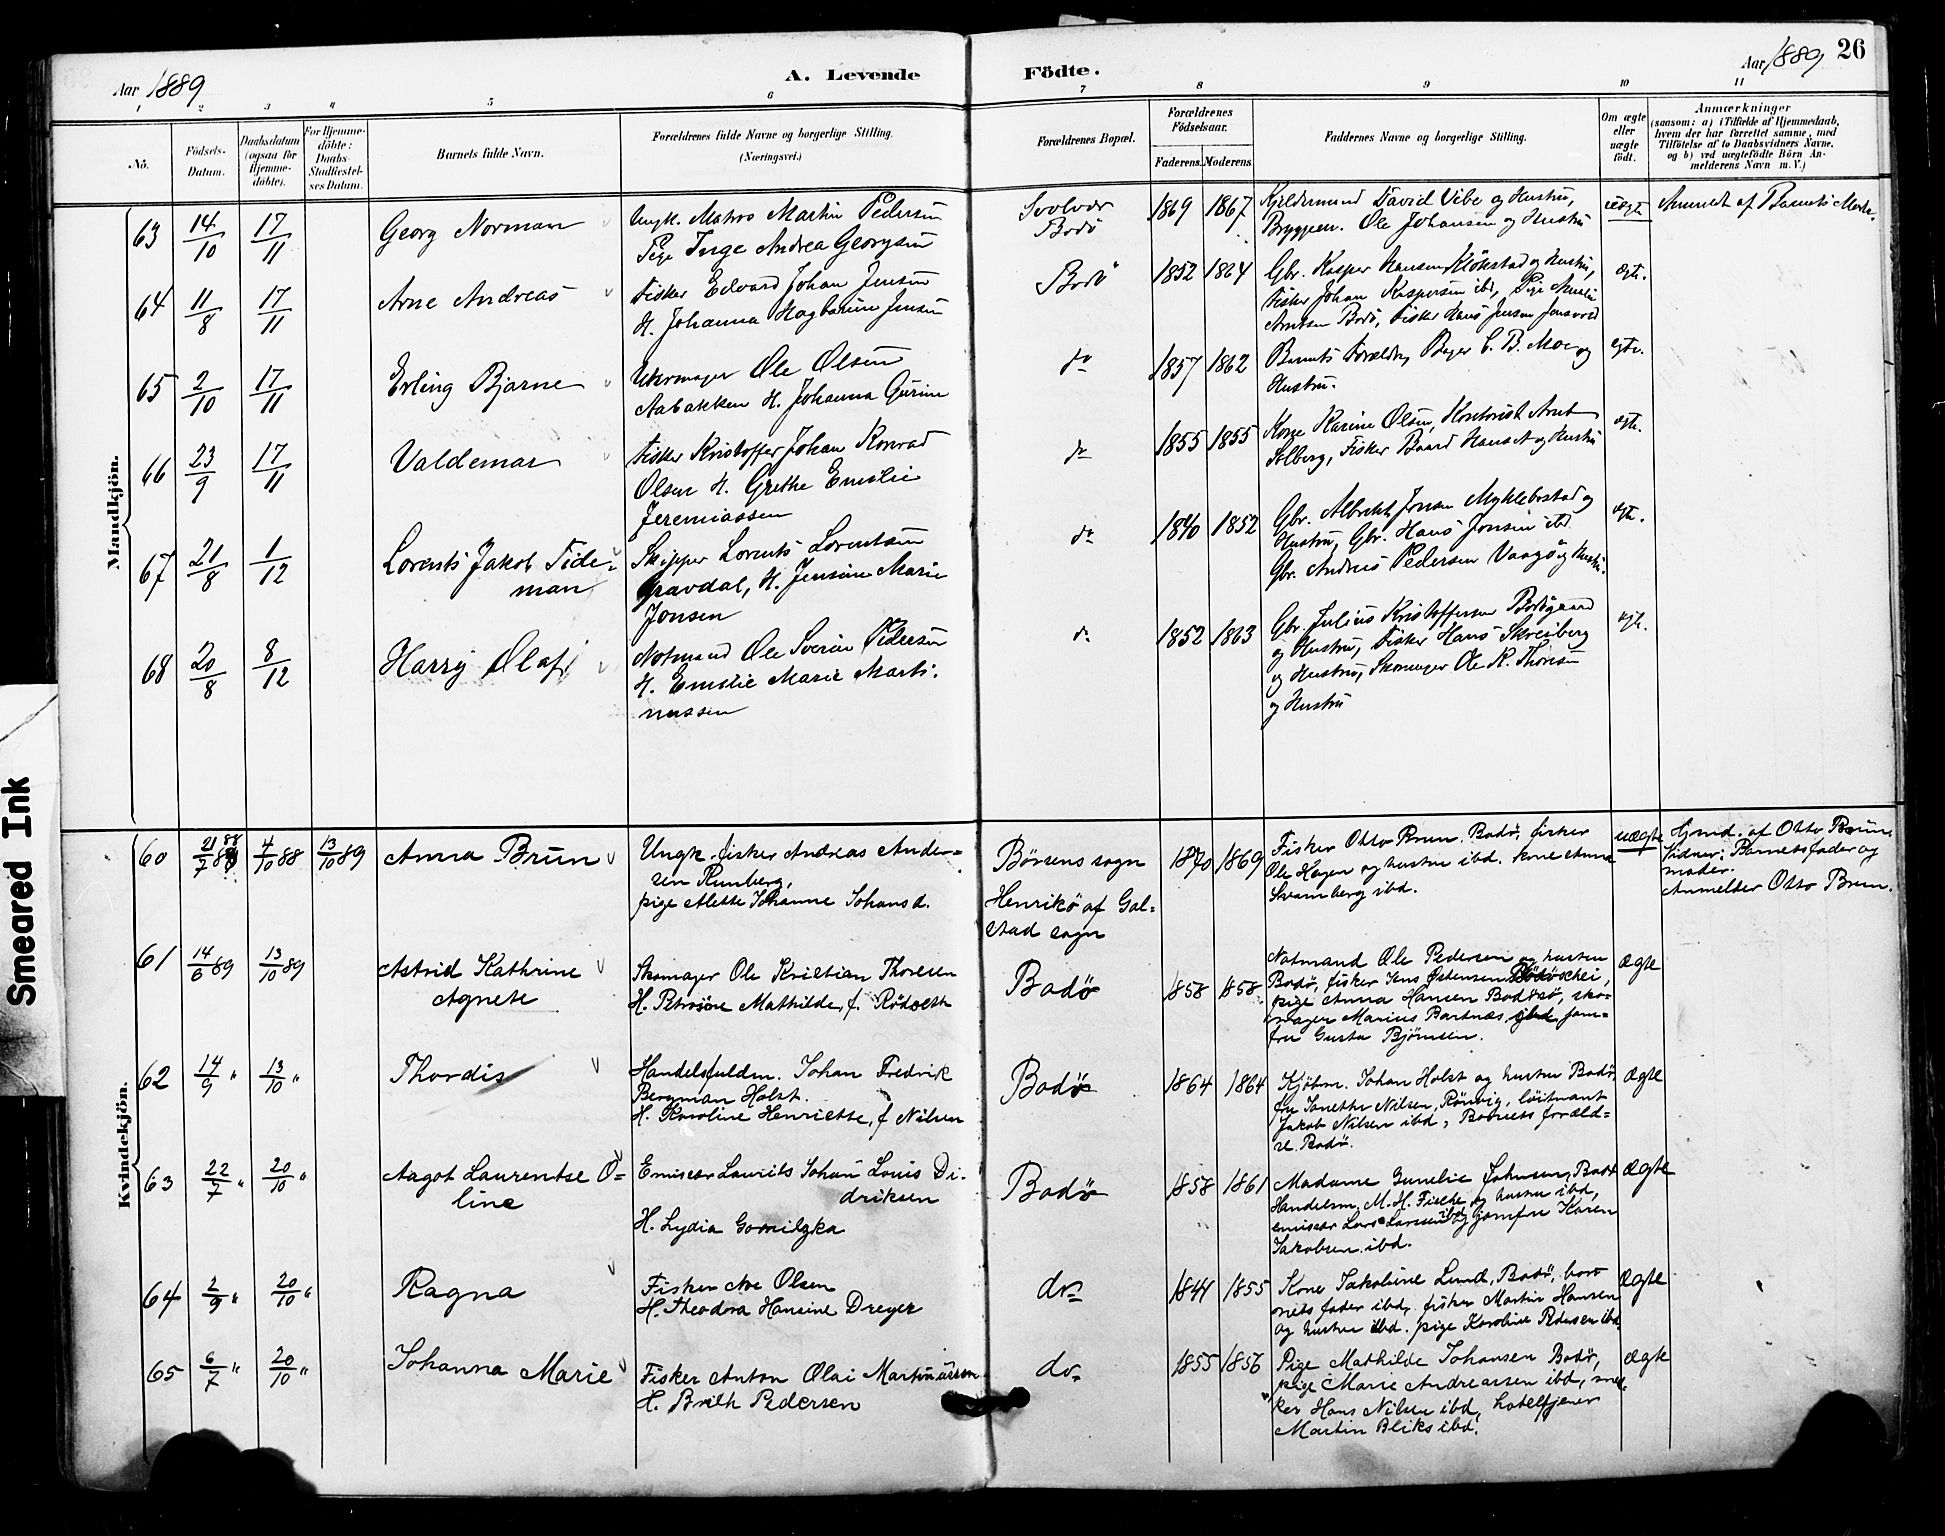 Aar 1889
A. Levende
Födte.
Aar 1889
26
1 2 3 4 5 6 7 8 9 10 11
No.
Födsels-
Datum.
Daabsdatum
(ogsaa for
Hjemme-
döbte).
For Hjemme-
döbte:
Daabs-
Stadfæstel-
ses Datum.
Barnets fulde Navn.
Forældrenes fulde Navne og borgerlige Stilling.
(Næringsvei.)
Forældrenes Bopæl.
Forældrenes
Födselsaar.
Faderens. Moderens.
Faddernes Navne og borgerlige Stilling.
Om ægte
eller
uægte
födt.
Anmærkninger
(saasom: a) i Tilfælde af Hjemmedaab,
hvem der har forrettet samme, med
Tilföielse af to Daabsvidners Navne,
og b) ved uægtefödte Börn An-
melderens Navn m. V.)
Mandkjön.
63 14/10 17/11
Georg Norman
Ungk. Matros Martin Pedersen
Pige Inge Andrea Georgsen
Svolvær
Bodö
1869 1867
Kjeldermand David Vibe og Hustru,
Bryggem. Ole Johansen og Hustru
uægte
Anmeldt af Barnets Moder.
64 11/8 17/11
Arne Andreas
Fisker Edvard Johan Jensen
H. Johanna Hagbarine Jensen
Bodö
1852 1864
Gbr. Kasper Hansen Klökstad og Hustru,
Fisker Johan Kaspersen ibd, Pige
Arntsen Bodö, Fisker Hans Jensen
ægte.
65 2/10 17/11
Erling Bjarne
Uhrmager Ole Olsen
Aabakken H. Johanna Gurine
do
1857 1862
Barnets Forældre, Bager C. B. Moe og
Hustru.
ægte.
66 23/9 17/11
Valdemar
Fisker Kristoffer Johan Konrad
Olsen H. Grethe Emilie
Jeremiassen
do
1855 1855
Kone Karine Olsen, Kontorist Arnt
Solberg, Fisker Baard Hansen og Hustru
ægte.
67 21/8 1/12
Lorents Jakob Tide-
man
Skipper Lorents Lorentsen
Gravdal, H. Jensine Marie
Jonsen
do
1840 1852
Gbr. Albrekt Jonsen Myklebostad og
Hustru, Gbr. Hans Jonsen ibd
Gbr. Andreas Pedersen Vaagö og Hustru.
ægte.
68 20/8 8/12
Harry Olaf
Notmand Ole Sverin Pedersen
H. Emilie Marie Marti-
nussen
do
1852 1863
Gbr. Julius Kristoffersen Bodögaard
og Hustru, Fisker Hans Skreiberg
og Hustru, Skomager Ole K. Thoresen
og Hustru
ægte.
Kvindekjön.
60 21/7 88 4/10 88 13/10 89
Anna Brun
Ungk. fisker Andreas Ander-
sen Runberg,
pige Alette Johanne Johansd.
Børsens sogn
Henrikö af Gal-
stad sogn
1870 1869
Fisker Otto Brun Bodø, fisker
Ole Hagen og hustru ibd. kone Anna
Svamberg ibd.
uægte
Hjmd. af Otto Brun
Vidner: Barnets fader og
moder.
Anmelder Otto Brun.
61 14/6 89 13/10 89
Astrid Kathrine
Agnete
Skomager Ole Kristian Thoresen
H. Petrine Mathilde, f. Rödseth
Bodø
1858 1858
Notmand Ole Pedersen og hustru
Bodø, fisker Jens Østensen
pige Anna Hansen Bodøsø, sko-
mager Marius Bartnæs, ibd, jom-
fru Gusta Bjørnsen.
ægte
62 14/9 " 13/10 "
Thordis
Handelsfuldm. Johan Fredrik
Bergman Holst.
H. Karoline Henriette, f Nilsen
Bodø
1864 1864
Kjøbm. Johan Holst og hustru Bodø,
fru Janette Nilsen, Rönvig, löitnant
Jakob Nilsen ibd, Barnets foræld-
re Bodø.
ægte
63 22/7 " 20/10 "
Aagot Laurentse O-
line
Emissær Laurits Johan Louis Di-
driksen
H. Lydia Gornitzka
Bodø
1858 1861
Madame Gunelie Johnsen, Bodø
Handelsm. M. H. Fische og hustru ibd,
emissær Lars Larsen ibd, og jomfru Karen
Jakobsen ibd.
ægte
64 2/9 " 20/10 "
Ragna
Fisker Noe Olsen
H. Theodora Hansine Dreyer
do
1844 1855
Kone Jakobine Lund, Bodø, bar-
nets fader ibd, fisker Martin Hansen
og hustru ibd. pige Karoline Pedersen ibd.
ægte
65 6/7 " 20/10 "
Johanna Marie
Fisker Anton Olai Martinussen
H. Brith Pedersen
do
1855 1856
Pige Mathilde Johansen Bodø,
pige Marie Andreassen ibd, sned-
ker Hans Nilsen ibd, hotelfjener
Martin Bliks ibd.
ægte
Smeared Ink